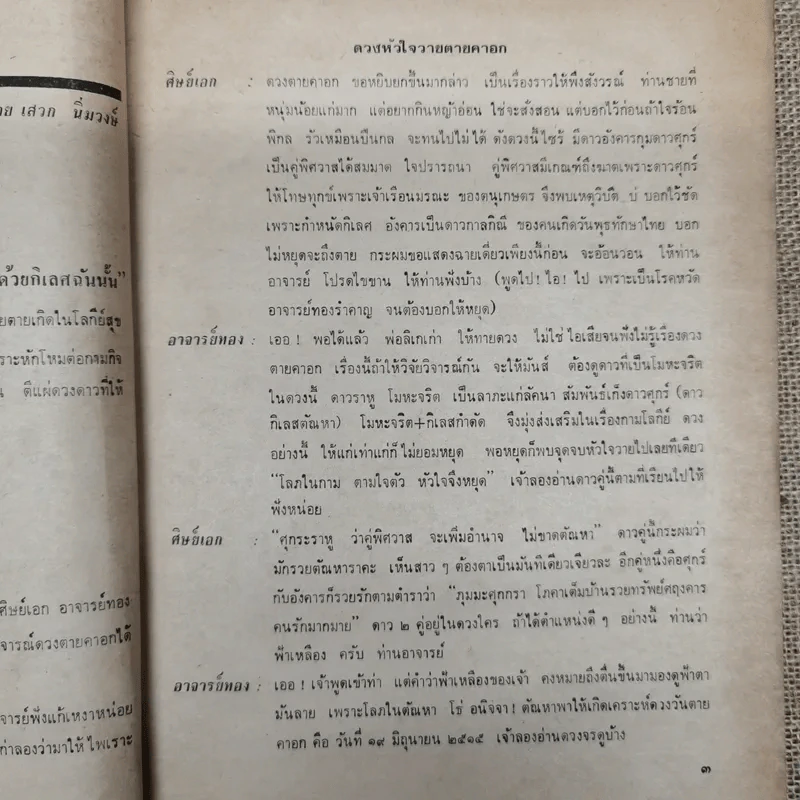 าย เสวก นิ่มวงษ์
ด้วยกิเลสฉันนั้น"
ยตายเกิดในโลกีย์สุข
ราะหักโหมต่อกามกิจ
น ตีแผ่ดวงดาวที่ให้
ศิษย์เอก อาจารย์ทอง
จารณ์ดวงตายคาอกได้
จารย์ฟังแก้เหงาหน่อย
ทำลองว่ามาให้ไพเราะ
ดวงหัวใจวายตายคาอก
ศิษย์เอก : ดวงตายคาอก ขอหยิบยกขึ้นมากล่าว เป็นเรื่องราวให้พึงสังวรณ์ ท่านชายที่
หนุ่มน้อยแก่มาก แต่อยากกินหญ้าอ่อน ใช่จะสั่งสอน แต่บอกไว้ก่อนถ้าใจร้อน
พิกล รัวเหมือนปืนกล จะทนไปไม่ได้ ดังดวงนี้ไซร้ มีดาวอังคารกุมดาวศุกร์
เป็นคู่พิศวาสได้สมมาด ใจปรารถนา คู่พิศวาสมีเกณฑ์ถึงฆาตเพราะดาวศุกร์
ให้โทษทุกข์เพราะเจ้าเรือนมรณะ ของตนุเกษตร จึงพบเหตุวิบัติ บ่ บอกไว้ชัด
เพราะกำหนัดกิเลศ อังคารเป็นดาวกาลกิณี ของคนเกิดวันพุธทักษาไทย บอก
ไม่หยุดจะถึงตาย กระผมขอแสดงฉายเดี่ยวเพียงนี้ก่อน จะอ้อนวอน ให้ท่าน
อาจารย์ โปรดไขขาน ให้ท่านฟังบ้าง (พูดไป! ไอ! ไป เพราะเป็นโรคหวัด
อาจารย์ทองรำคาญ จนต้องบอกให้หยุด)
อาจารย์ทอง : เออ! พอได้แล้ว พ่อลิเกเก่า ให้ทายดวง ไม่ใช่ไอเสียจนฟังไม่รู้เรื่องดวง
ตายคาอก เรื่องนี้ถ้าให้วิจัยวิจารณ์กัน จะให้มันส์ ต้องดูดาวที่เป็นโมหะจริต
ในดวงนี้ ดาวราหู โมหะจริต เป็นลาภะแก่ลัคนา สัมพันธ์เก็งดาวศุกร์ (ดาว
กิเลสตัณหา) โมหะจริต+กิเลสกำดัด จึงมุ่งส่งเสริมในเรื่องกามโลกีย์ ดวง
อย่างนี้ ให้แก่เท่าแก่ก็ไม่ยอมหยุด พอหยุดก็พบจุดจบหัวใจวายไปเลยทีเดียว
"โลภในกาม ตามใจตัว หัวใจจึงหยุด" เจ้าลองอ่านดาวคู่นี้ตามที่เรียนไปให้
ฟังหน่อย
ศิษย์เอก : "ศุกระราหู ว่าคู่พิศวาส จะเพิ่มอำนาจ ไม่ขาดตัณหา" ดาวคู่นี้กระผมว่า
มักรวยตัณหาราคะ เห็นสาว ๆ ต้องตาเป็นมันทีเดียวเจียวละ อีกคู่หนึ่งคือศุกร์
กับอังคารก็รวยรักตามตำราว่า "ภุมมะศุกกรา โภคาเต็มบ้านรวยทรัพย์ศฤงคาร
คนรักมากมาย" ดาว ๒ คู่อยู่ในดวงใคร ถ้าได้ตำแหน่งดี ๆ อย่างนี้ ท่านว่า
ฟ้าเหลือง ครับ ท่านอาจารย์
อาจารย์ทอง : เออ! เจ้าพูดเข้าท่า แต่คำว่าฟ้าเหลืองของเจ้า คงหมายถึงตื่นขึ้นมามองดูฟ้าตา
มันลาย เพราะโลภในตัณหา โซ่ อนิจจา! ตัณหาพาให้เกิดเคราะห์ดวงวันตาย
คาอก คือ วันที่ ๑๙ มิถุนายน ๒๕๑๕ เจ้าลองอ่านดวงจรดูบ้าง
๓